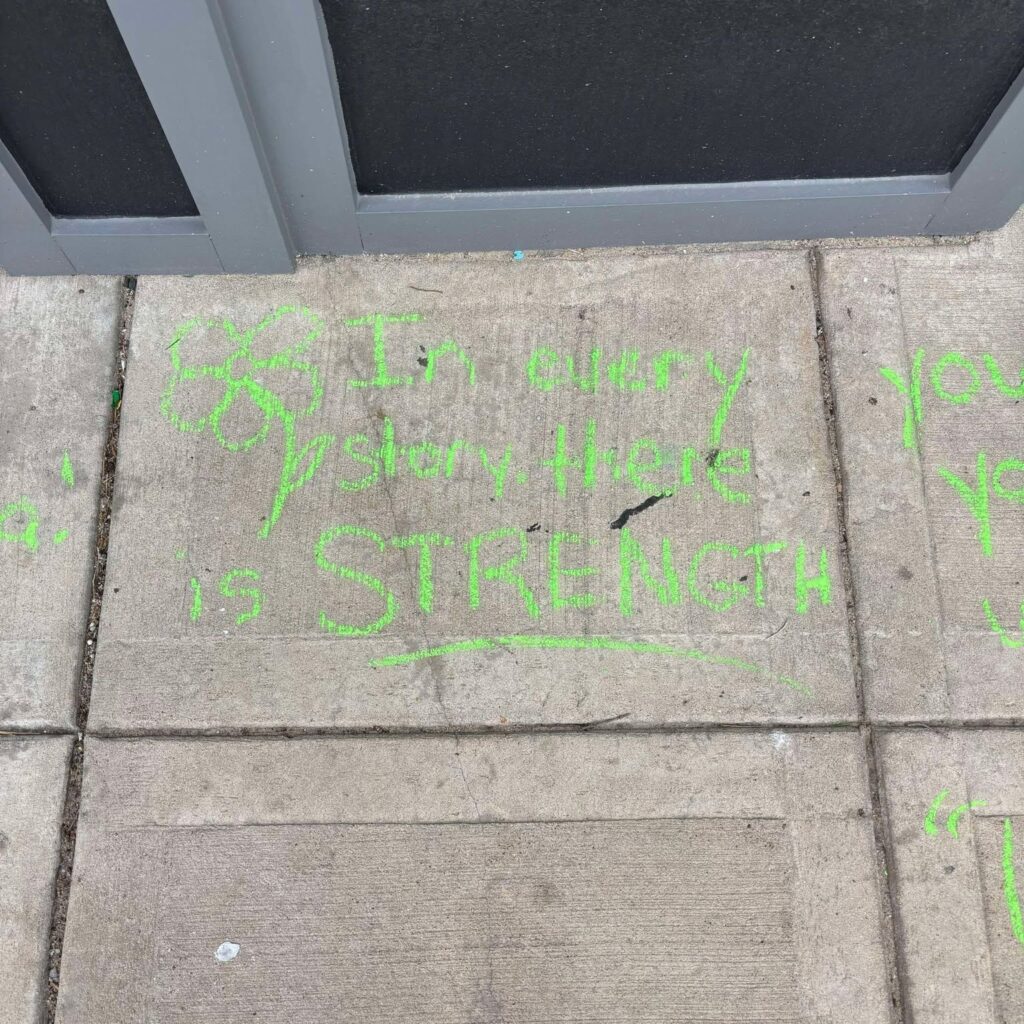 In every
story, there
is STRENGTH
you
yo
"